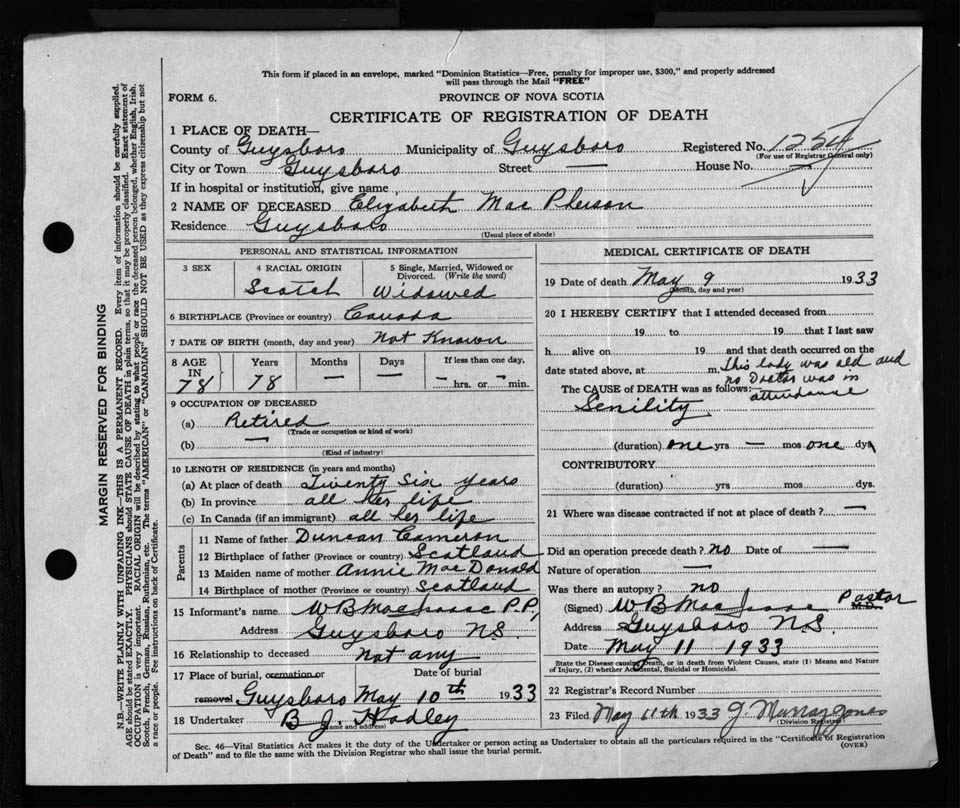 This form if placed in an envelope, marked "Dominion Statistics—Free, penalty for improper use, $300," and properly addressed
will pass through the Mail "FREE"
FORM 6.
PROVINCE OF NOVA SCOTIA
CERTIFICATE OF REGISTRATION OF DEATH
1 PLACE OF DEATH—
County of Guysboro Municipality of Guysboro Registered No. 1254
(For use of Registrar General only)
City or Town Guysboro Street — House No. —
If in hospital or institution, give name
2 NAME OF DECEASED Elizabeth Mac Pherson
Residence Guysboro
(Usual place of abode)
PERSONAL AND STATISTICAL INFORMATION
3 SEX
4 RACIAL ORIGIN
Scotch
5 Single, Married, Widowed or
Divorced. (Write the word)
Widowed
6 BIRTHPLACE (Province or country) Canada
7 DATE OF BIRTH (month, day and year) Not Known
8 AGE Years Months Days If less than one day,
IN
78 78 — — — hrs. or — min.
9 OCCUPATION OF DECEASED
(a) Retired
(Trade or occupation or kind of work)
(b) —
(Kind of industry)
10 LENGTH OF RESIDENCE (in years and months)
(a) At place of death Twenty Six years
(b) In province all her life
(c) In Canada (if an immigrant) all her life
Parents
11 Name of father Duncan Cameron
12 Birthplace of father (Province or country) Scotland
13 Maiden name of mother Annie MacDonald
14 Birthplace of mother (Province or country) Scotland
15 Informant's name W B MacIsaac P.P.
Address Guysboro N.S.
16 Relationship to deceased not any
17 Place of burial, cremation or Date of burial
removal Guysboro May 10th 1933
18 Undertaker B J. Hadley
(Name and address)
MEDICAL CERTIFICATE OF DEATH
19 Date of death May 9 1933
(Month, day and year)
20 I HEREBY CERTIFY that I attended deceased from
19 to 19 that I last saw
h alive on 19 and that death occurred on the
date stated above, at m. This lady was old and
no Doctor was in
attendance
The CAUSE of DEATH was as follows
Senility
(duration) one yrs — mos one dys
CONTRIBUTORY
(duration) yrs mos dys.
21 Where was disease contracted if not at place of death? —
Did an operation precede death? no Date of —
Nature of operation —
Was there an autopsy? no
(Signed) W B MacIsaac Pastor M.D.
Address Guysboro N.S.
Date May 11 1933
State the Disease causing Death, or in death from Violent Causes, state (1) Means and Nature
of Injury, (2) whether Accidental, Suicidal or Homicidal.
22 Registrar's Record Number
23 Filed May 11th 1933 J Murray Jones
(Division Registrar)
Sec. 46—Vital Statistics Act makes it the duty of the Undertaker or person acting as Undertaker to obtain all the particulars required in the "Certificate of Registration
of Death" and to file the same with the Division Registrar who shall issue the burial permit.
(OVER)
MARGIN RESERVED FOR BINDING
N.B.—WRITE PLAINLY WITH UNFADING INK—THIS IS A PERMANENT RECORD. Every item of information should be carefully supplied.
AGE should be stated EXACTLY. PHYSICIANS should STATE CAUSE OF DEATH in plain terms, so that it may be properly classified. Exact statement of
OCCUPATION is very important. RACIAL ORIGIN will be described by stating to what people or race the deceased person belonged, whether English, Irish,
Scotch, French, German, Russian, Ruthenian, etc. The terms "AMERICAN" or "CANADIAN" SHOULD NOT BE USED as they express citizenship but not
a race or people. See instructions on back of Certificate.